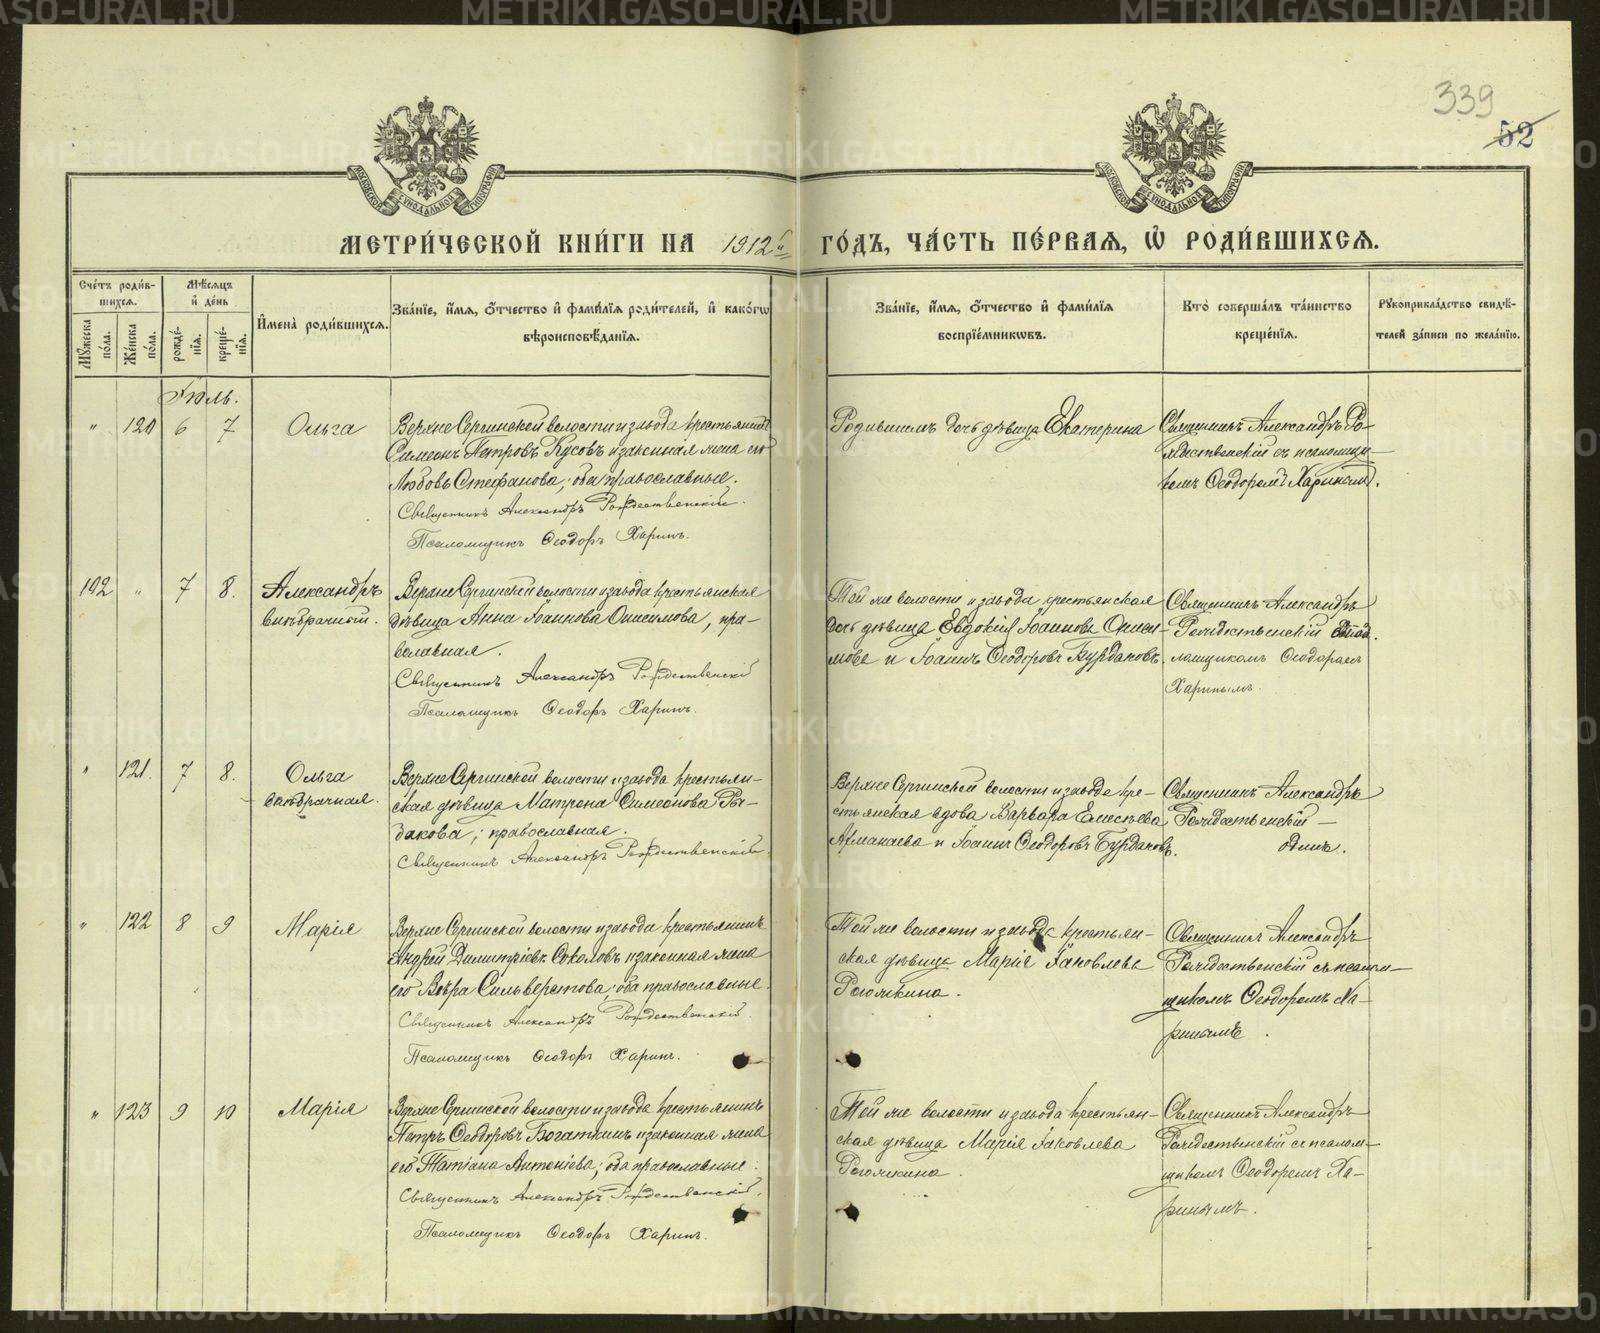 339
52
МЕТРИ́ЧЕСКОЙ КНИ́ГИ НА 1912 й ГО́ДЪ, ЧА́СТЬ ПЕ́РВАЯ, Ѡ҆ РОДИ́ВШИХСЯ.
Сче́тъ роди́в-
шихся.
Мѣ́сяцъ
и҆ де́нь
Мꙋ́жеска по́ла.
Же́нска по́ла.
рожде́-
нїя.
креще́-
нїя.
И҆мена̀ роди́вшихся.
Зва́нїе, и҆́мя, ѻ҆́тчество и҆ фами́лїя роди́телей, и҆ како́гѡ
вѣроисповѣ́данїя.
Зва́нїе, и҆́мя, ѻ҆́тчество и҆ фами́лїя
воспрїе́мникѡвъ.
Кто̀ соверша́лъ та́инство
креще́нїя.
Рꙋкоприкла́дство свидѣ́-
телей за́писи по жела́нїю.
Іюль.
" 120 6 7
Ольга
Верхне Сергинской волости и завода крестьянинъ
Симеонъ Петровъ Кусовъ и законная жена его
Любовь Стефанова, оба православные.
Священникъ Александръ Рождественскій.
Псаломщикъ Ѳеодоръ Харинъ.
Родившимъ дочь дѣвица Екатерина
Священникъ Александръ Ро-
ждественскій съ псаломщи-
комъ Ѳеодоромъ Харинымъ.
102 " 7 8.
Александръ
внѣбрачный.
Верхне Сергинской волости и завода крестьянская
дѣвица Анна Іоаннова Онисимова, пра-
вославная.
Священникъ Александръ Рождественскій
Псаломщикъ Ѳеодоръ Харинъ.
Той же волости и завода крестьянская
дочь дѣвица Евдокія Іоаннова Ониси-
мова и Іоаннъ Ѳеодоровъ Бурдаковъ.
Священникъ Александръ
Рождественскій
ломщикомъ Ѳеодоромъ
Харинымъ.
" 121. 7 8.
Ольга
внѣбрачная.
Верхне Сергинской волости и завода крестьян-
ская дѣвица Матрона Симеонова Ры-
бакова, православная.
Священникъ Александръ Рождественскій.
Верхне Сергинской волости и завода кре-
стьянская вдова Варвара Елисѣева
и Іоаннъ Ѳеодоровъ Бурдаковъ.
Священникъ Александръ
Рождественскій –
одинъ.
" 122 8 9
Марія
Верхне Сергинской волости и завода крестьянинъ
Андрей Димитріевъ Соколовъ и законная жена
его Вѣра Сильверстова, оба православные.
Священникъ Александръ Рождественскій.
Псаломщикъ Ѳеодоръ Харинъ.
Той же волости и завода крестьян-
ская дѣвица Марія Іаковлева
Рогожкина.
Священникъ Александръ
Рождественскій съ псалом-
щикомъ Ѳеодоромъ Ха-
ринымъ.
" 123 9 10
Марія
Верхне Сергинской волости и завода крестьянинъ
Петръ Ѳеодоровъ Богаткинъ и законная жена
его Татіана Антоніева, оба православные.
Священникъ Александръ Рождественскій.
Псаломщикъ Ѳеодоръ Харинъ.
Той же волости и завода крестьян-
ская дѣвица Марія Іаковлева
Рогожкина.
Священникъ Александръ
Рождественскій съ псалом-
щикомъ Ѳеодоромъ Ха-
ринымъ.